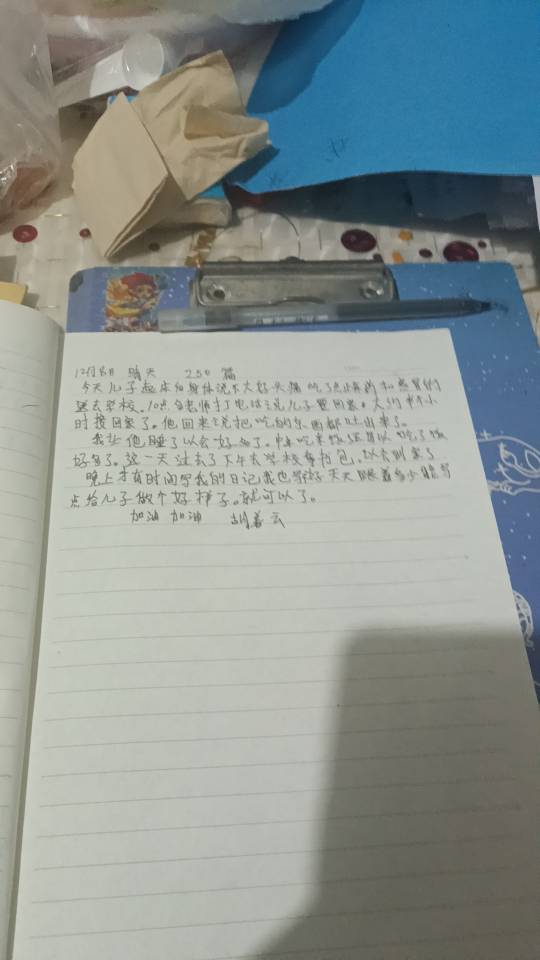 12月8日 晴天 250 篇
今天儿子起床自身体说不大好头痛吃了点止痛药和感冒的
送去学校。10点多老师打电话说儿子要回家。大约半小
时接回家了。他回来说把吃的东西都吐出来了。
我让他睡了以会好多了。中午吃来饭还可以吃了饭
好多了。这一天过去了下午去学校拿书包,以会到家了
晚上才有时间写我的日记我也写好天天跟着多少能写
点给儿子做个好样子。就可以了。
加油 加油 胡着云